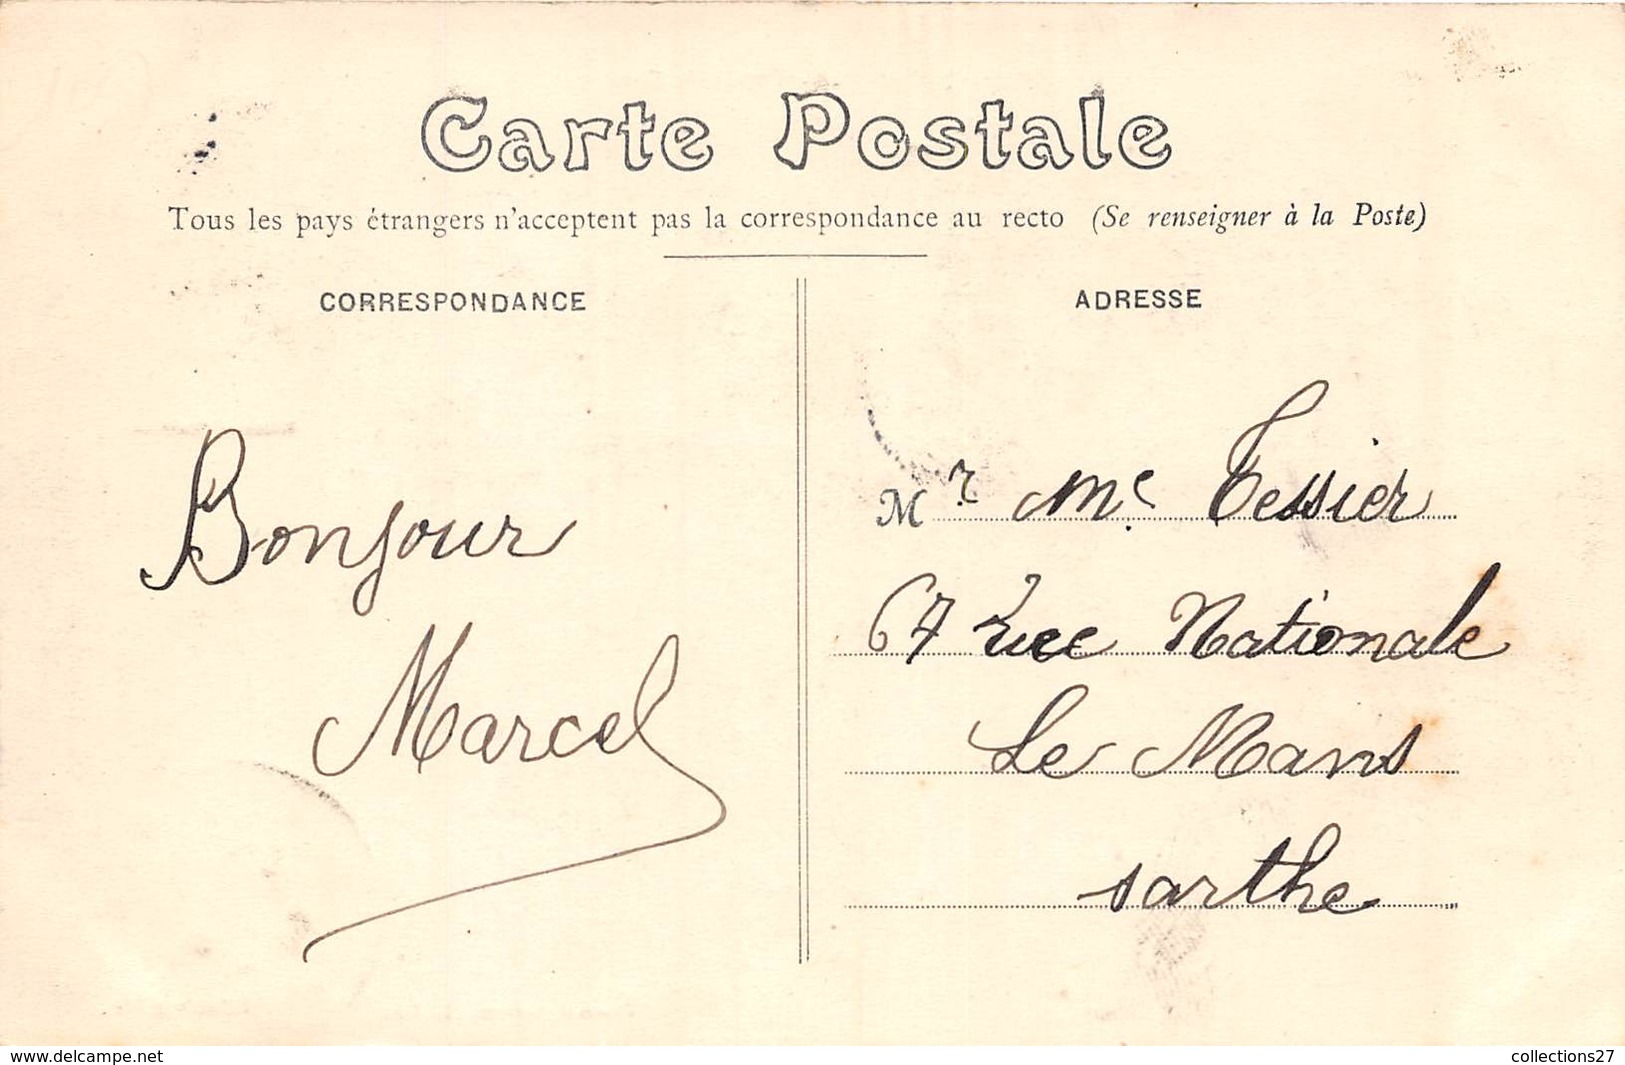 Carte Postale
Tous les pays étrangers n'acceptent pas la correspondance au recto (Se renseigner à la Poste)
CORRESPONDANCE
Bonjour
Marcel
ADRESSE
Mr Me Tessier
67 rue Nationale
Le Mans
sarthe
www.delcampe.net
collections27